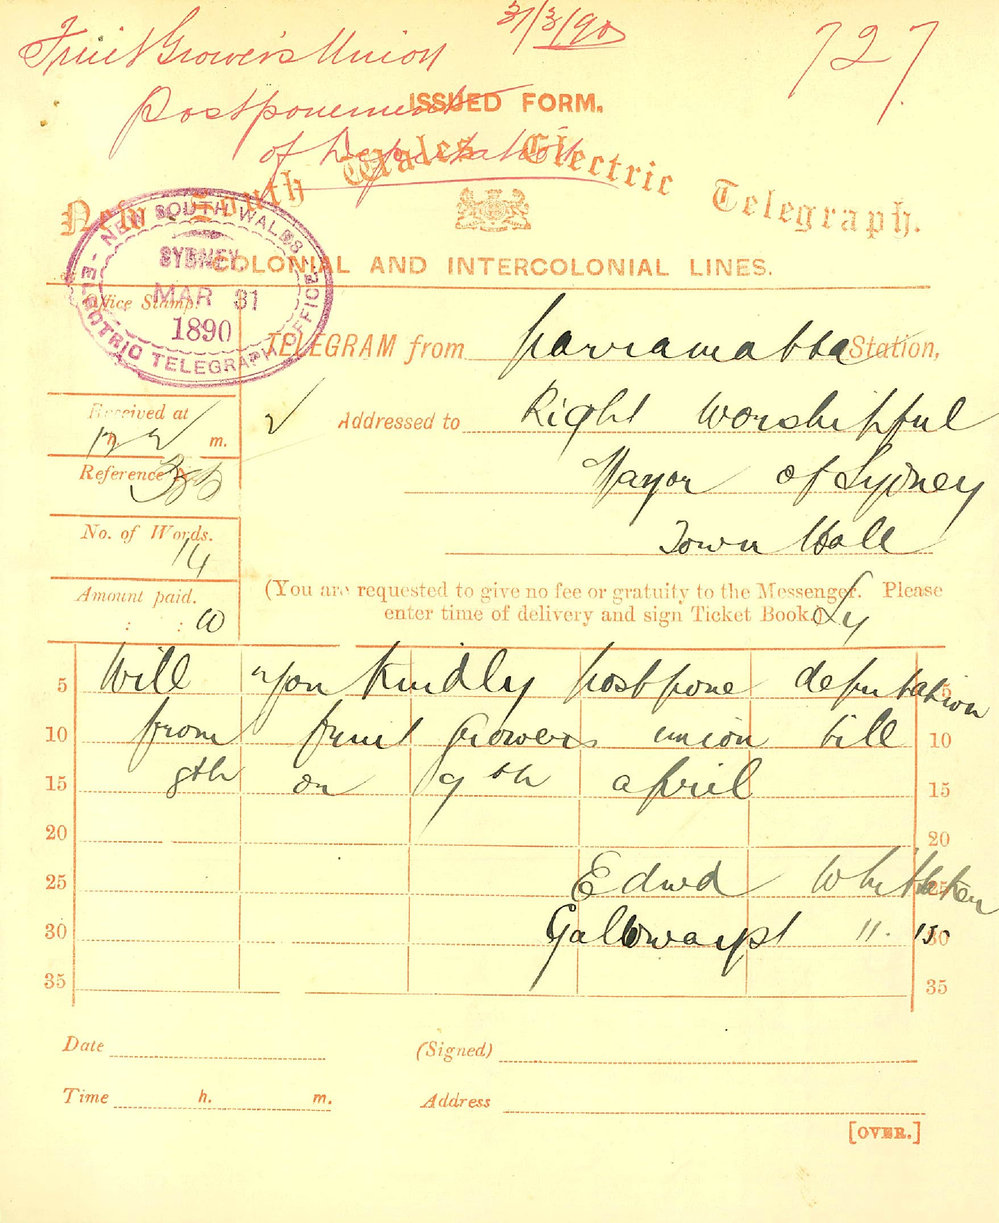 31/3/90
Fruit Grower's Union
727
Postponement
of Deputation
ISSUED FORM.
New South Wales Electric Telegraph.
COLONIAL AND INTERCOLONIAL LINES.
NEW SOUTH WALES
SYDNEY
MAR 31
1890
ELECTRIC TELEGRAPH OFFICE
Office Stamp.
TELEGRAM from parramatta Station,
Received at
m.
Addressed to Right Worshipful
Mayor of Sydney
Town Hall
Reference
No. of Words.
14
Amount paid.
: :
(You are requested to give no fee or gratuity to the Messenger. Please
enter time of delivery and sign Ticket Book.)
5 Will you kindly postpone deputation 5
10 from fruit Growers union till 10
15 8th or 9th april 15
20 20
25 Edwd Whittaker 25
30 11. 30
35 35
Date
(Signed)
Time h. m.
Address
[OVER.]